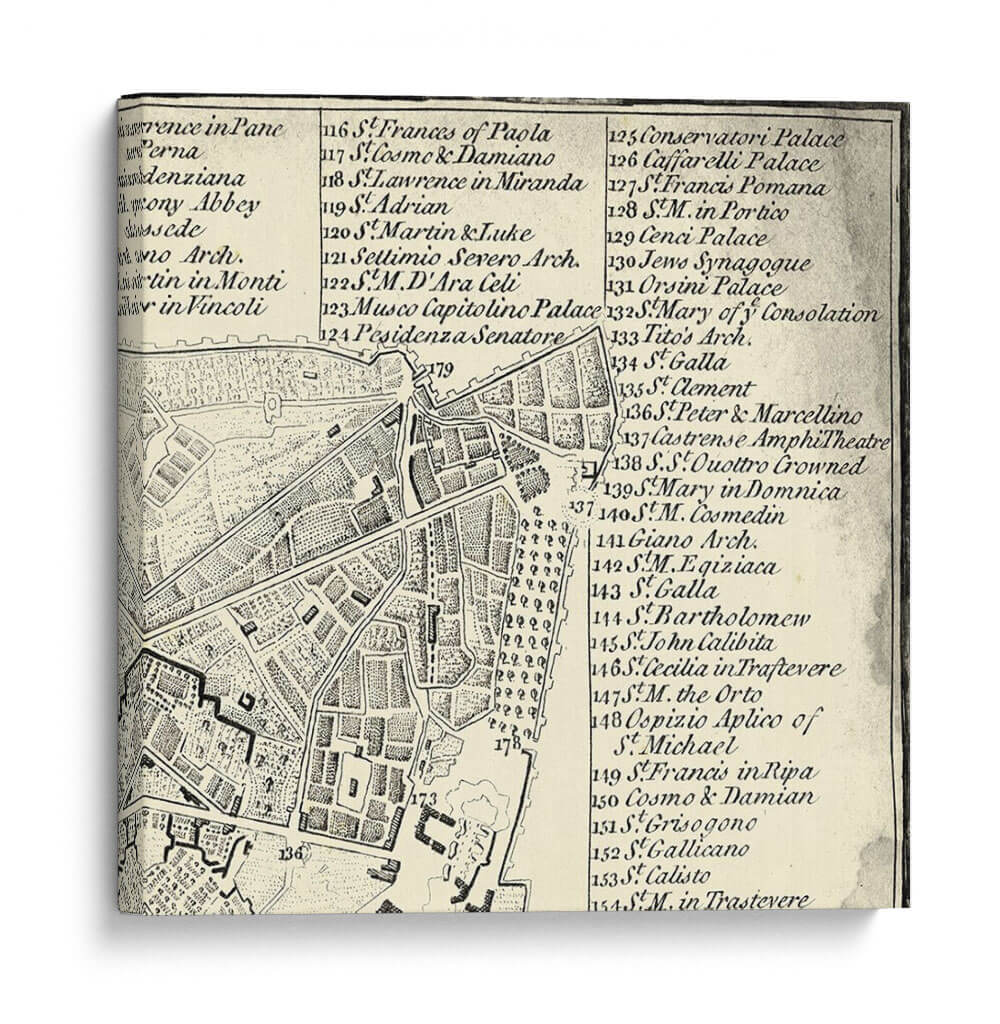 rence in Pane
Perna
denziana
ony Abbey
ssede
no Arch.
rtin in Monti
in Vincoli
116 St. Frances of Paola
117 St. Cosmo & Damiano
118 St. Lawrence in Miranda
119 St. Adrian
120 St. Martin & Luke
121 Settimio Severo Arch.
122 St. M. D'Ara Celi
123 Musco Capitolino Palace
124 Pesidenza Senatore
125 Conservatori Palace
126 Caffarelli Palace
127 St. Francis Pomana
128 St. M. in Portico
129 Cenci Palace
130 Jews Synagogue
131 Orsini Palace
132 St. Mary of ye Consolation
133 Tito's Arch.
134 St. Galla
135 St. Clement
136 St. Peter & Marcellino
137 Castrense AmphiTheatre
138 S. St. Ouottro Crowned
139 St. Mary in Domnica
140 St. M. Cosmedin
141 Giano Arch.
142 St. M. Egiziaca
143 St. Galla
144 St. Bartholomew
145 St. John Calibita
146 St. Cecilia in Trastevere
147 St. M. the Orto
148 Ospizio Aplico of
St. Michael
149 St. Francis in Ripa
150 Cosmo & Damian
151 St. Grisogono
152 St. Gallicano
153 St. Calisto
154 St. M. in Trastevere
179
137
178
173
136